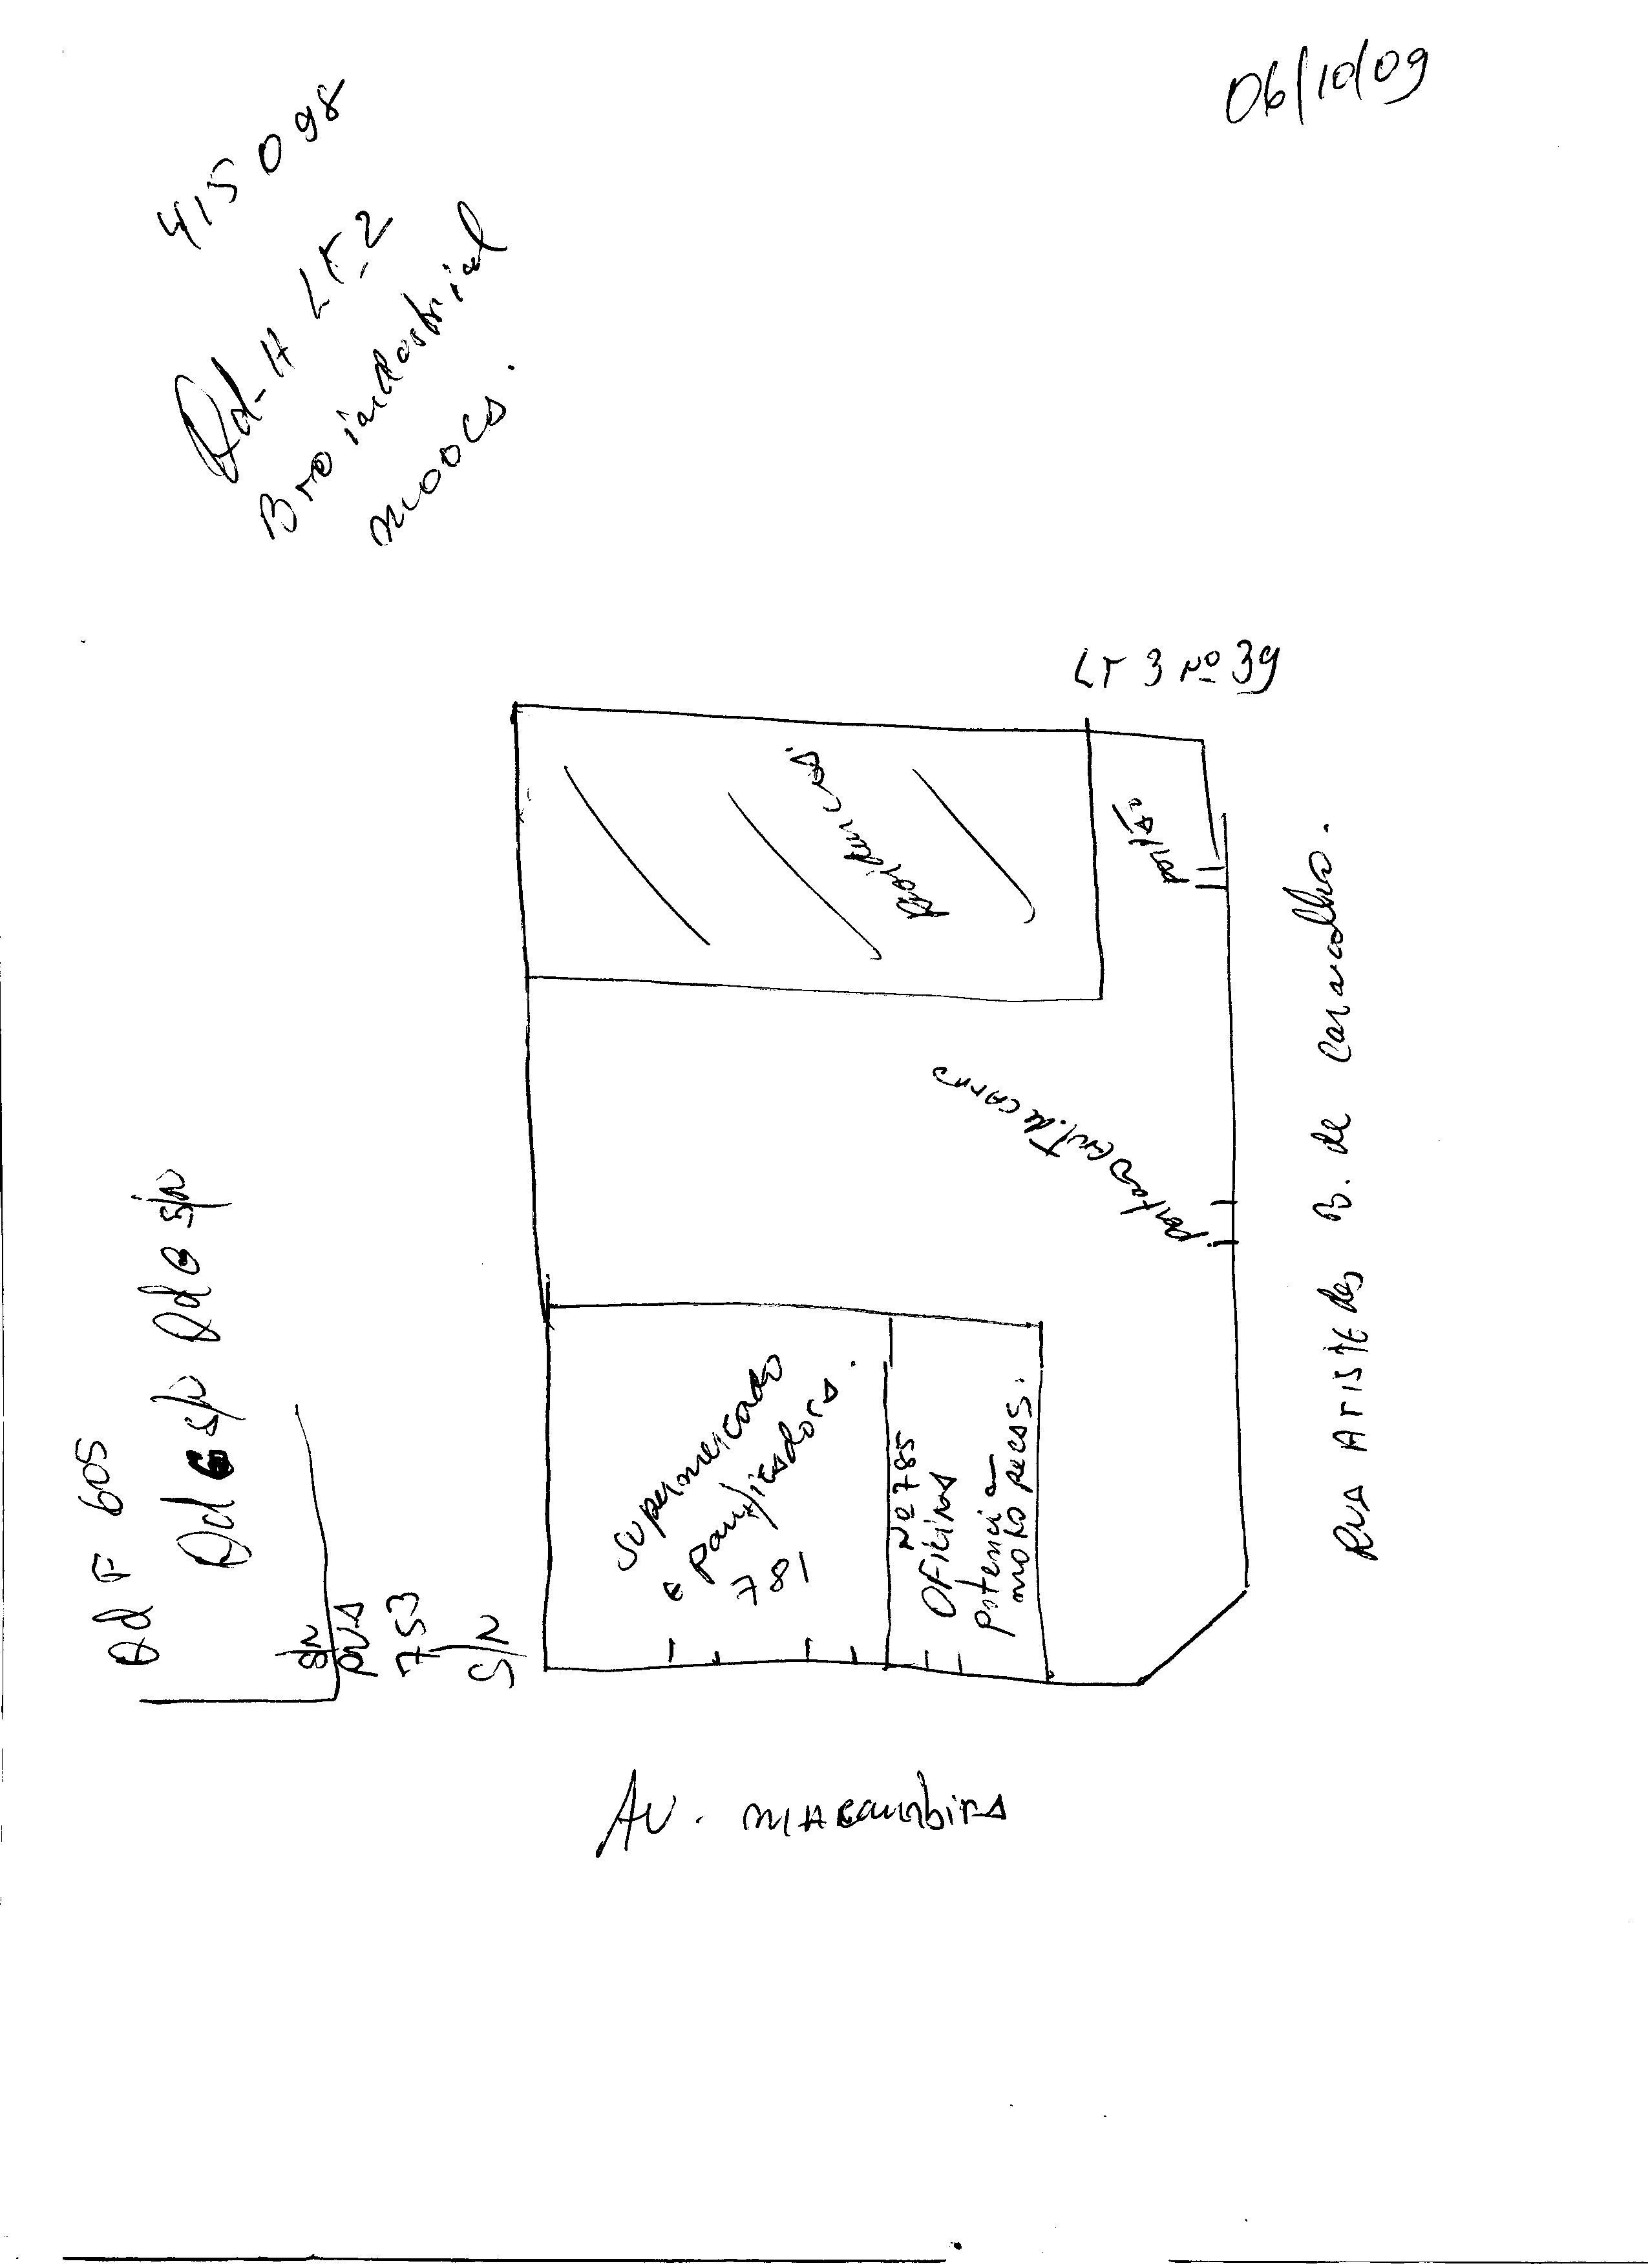 06/10/09
415098
Qd-H LT-2
Bro industrial
mooca.
LT 3 Nº 39
portão
portão ent. de carros
Rua Aristedes B. de carvalho.
Qd F 605
Qd G s/n Qd G s/n
S/N
RUA
753
S/N
supermercado
e panificadora.
781
Nº 785
OFICINA
potencia
moto pecas.
Av. MAcambira